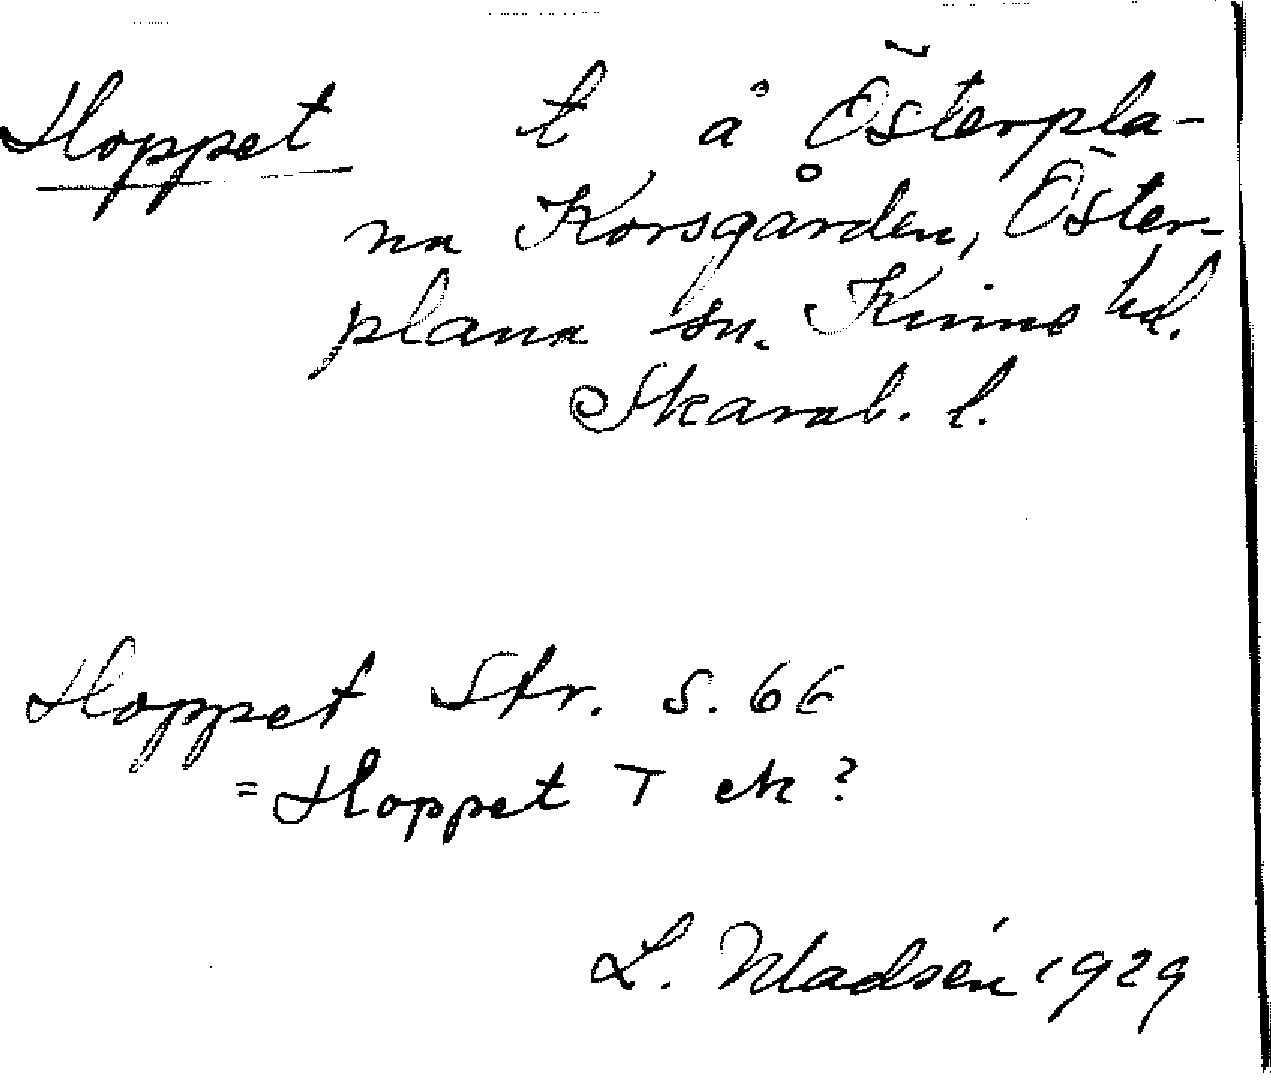 Hoppet t å Österpla-
na Korsgården, Öster-
plana sn. Kinne hd.
Skarab. l.
Hoppet Str. S. 66
= Hoppet T ek ?
L. Madsén 1929